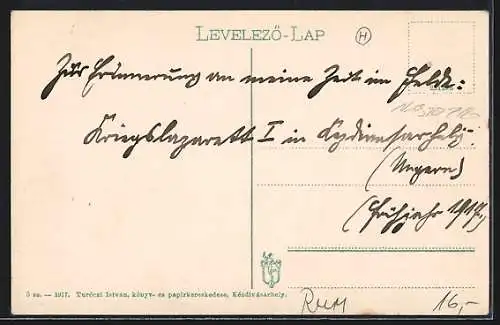 LEVELEZŐ-LAP
H
Zur Erinnerung an meine Zeit im Felde:
Kriegslazarett I in Kezdivasarhely.
(Ungarn)
(Frühjahr 1917)
5 sz. — 1917. Turóczi István, könyv- és papirkereskedése, Kézdivásárhely.
16,-